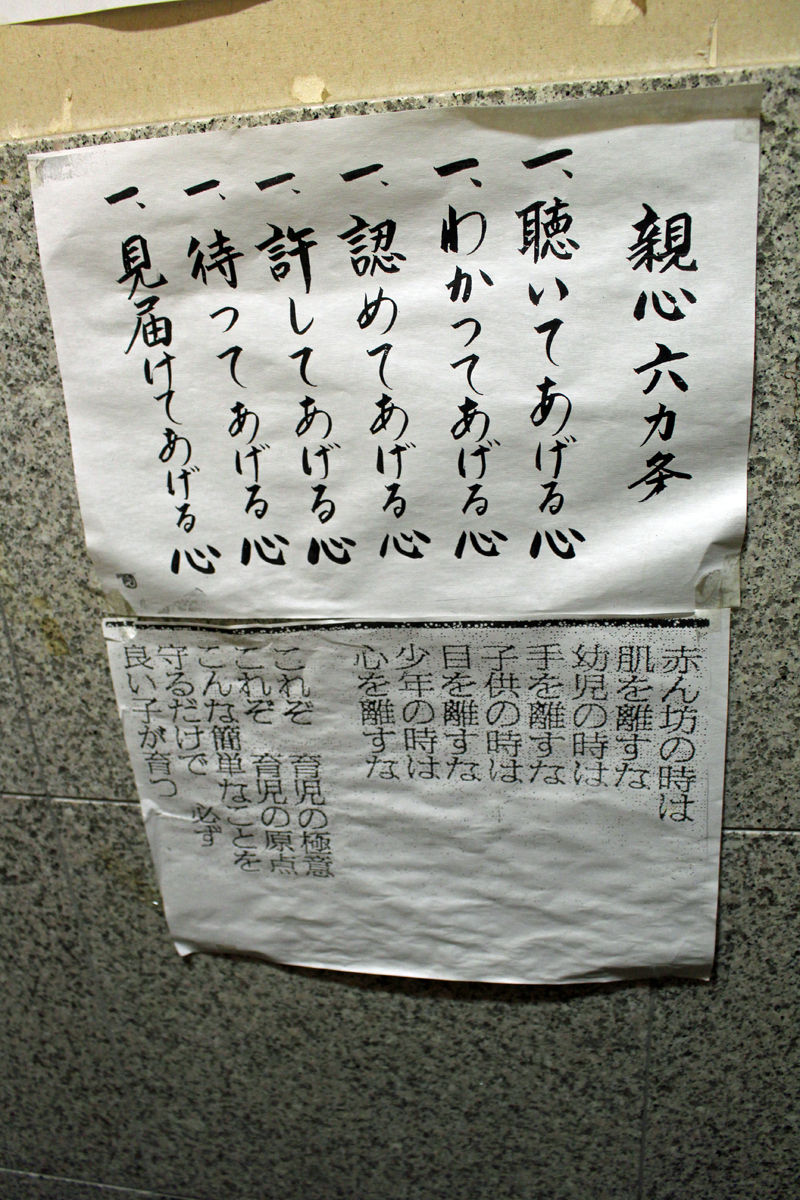 親心六カ条
一、聴いてあげる心
一、わかってあげる心
一、認めてあげる心
一、許してあげる心
一、待ってあげる心
一、見届けてあげる心
赤ん坊の時は
肌を離すな
幼児の時は
手を離すな
子供の時は
目を離すな
少年の時は
心を離すな
これぞ 育児の極意
これぞ 育児の原点
こんな簡単なことを
守るだけで 必ず
良い子が育つ